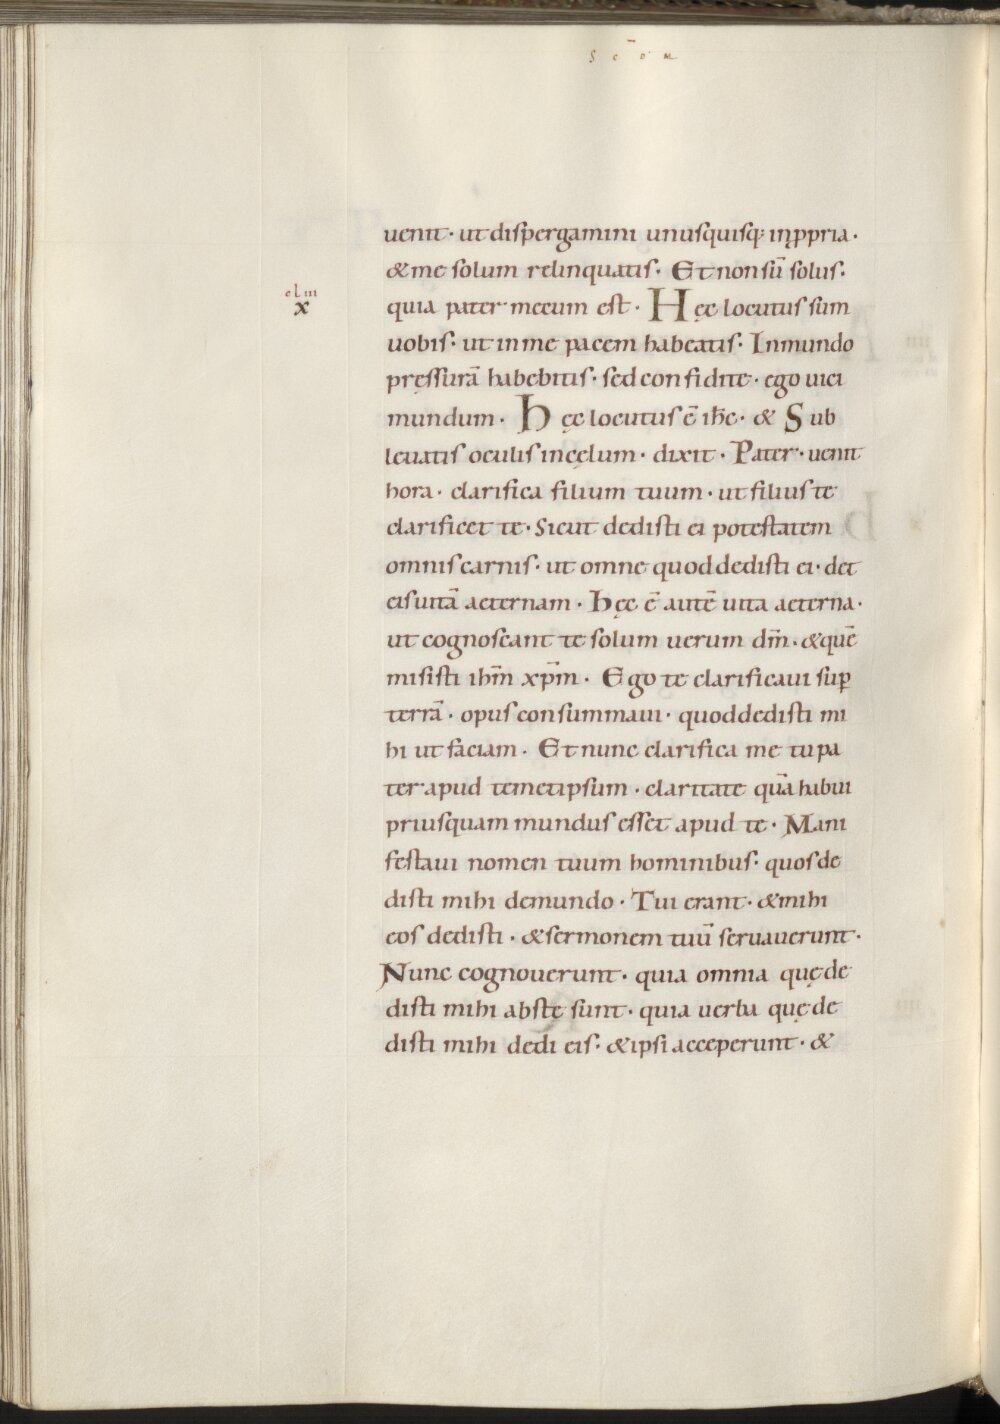 S C̄ D M
uenit · ut dispergamini unusquisq; inꝓpria ·
& me solum relinquatis · Et non sū solus ·
clııı
x
quia pater mecum est · Hęc locutus sum
uobis · ut in me pacem habeatis · In mundo
pręssurā habebitis · sed confidite · ego uici
mundum · hęc locutus ē ihc̄ · & Sub
leuatis oculis in cęlum · dixit · Pater · uenit
hora · clarifica filium tuum · ut filius te
clarificet te · Sicut dedisti ei potestatem
omnis carnis · ut omne quod dedisti ei · det
eis uitā aeternam · hęc ē autē uita aeterna ·
ut cognoscant te solum uerum dm̄ · & quē
misisti ihm̄ xpm̄ · Ego te clarificaui suꝑ
terrā · opus consummaui · quod dedisti mi
hi ut faciam · Et nunc clarifica me tu pa
ter apud temetipsum · claritate quā habui
priusquam mundus esset apud te · Mani
festaui nomen tuum hominibus · quos de
disti mihi de mundo · Tui erant · & mihi
eos dedisti · & sermonem tuū seruauerunt ·
Nunc cognouerunt · quia omnia quę de
disti mihi abs te sunt · quia uerba quę de
disti mihi dedi eis · & ipsi acceperunt · &